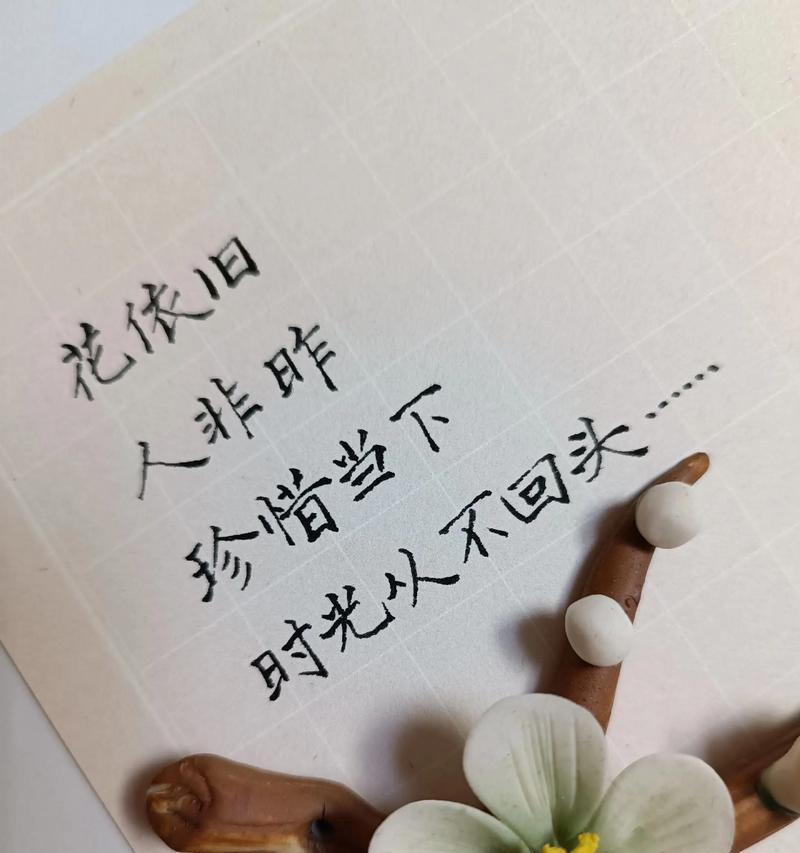 花依旧
人非昨
珍惜当下
时光从不回头……